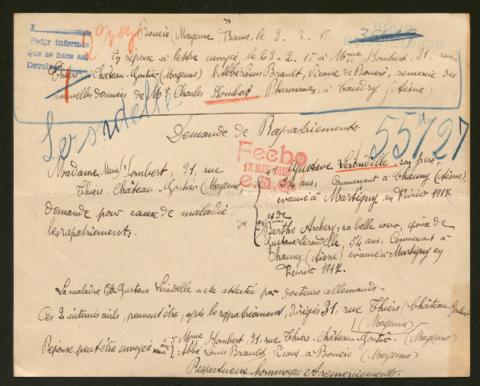 Bouère Mayenne France, le 3. 3. 17
Pedir informes
Que se haga así
En réponse à lettre envoyé le 23-2-17 à Mme Hombert, 31, rue
Thiers, Château-Gontier (Mayenne) l'Abbé Louis Brault, Vicaire de Bouère, remercie des
nouvelles données de Mr. Charles Hombert Pharmacien, à Caudry (Aisne)
55727
Demande de Rapatriements
Fecho
13 MAR
Madame Hombert, 31, rue
Thiers, Château-Gontier (Mayenne)
demande pour cause de maladie,
les rapatriements.
de
Gustave Lérondelle son frère,
34 ans, Commerçant à Chauny (Aisne)
évacué à Martigny en Février 1917
et de
Berthe Archery, sa belle soeur, épouse de
Gustave Lérondelle, 34 ans, Commerçant à
Chauny (Aisne) évacuée à Martigny en
Février 1917.
La maladie de Gustave Lérondelle a été attestée par docteurs allemands.
Ces 2 internés civils peuvent être, après le rapatriement, dirigés 31, rue Thiers (Château-Gontier
(Mayenne)
Réponse peut être envoyée ou à Mme Hombert, 31, rue Thiers - Château-Gontier - (Mayenne)
Abbé Louis Brault, Vicaire à Bouère (Mayenne)
Respectueux hommages et remerciements.